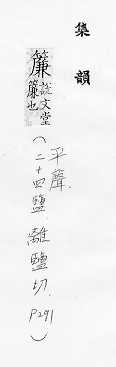 集韻
簾 說文堂
簾也
(平聲
二十四鹽 離鹽切 P291)